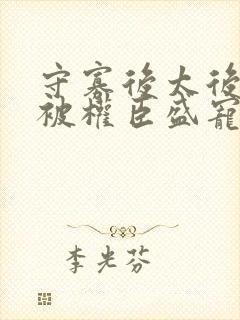 守寡後太後
被權臣盛寵
李光芬